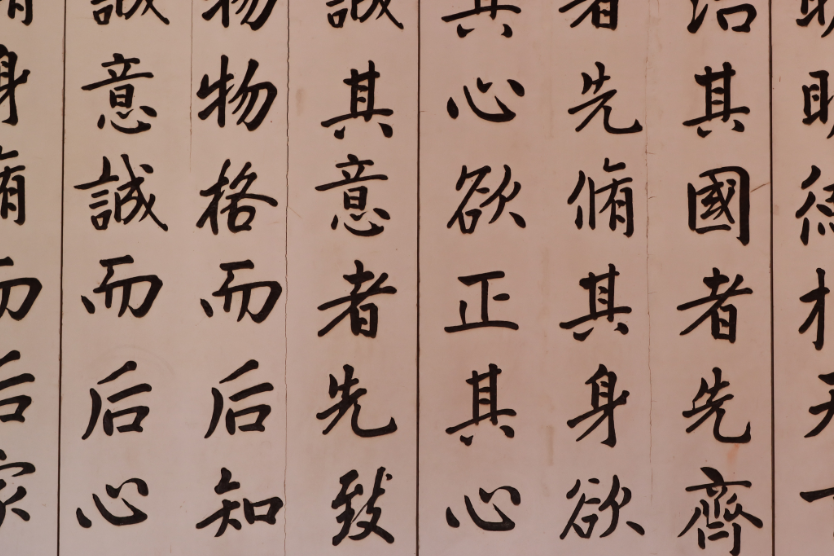 治其國者先齊
者先脩其身欲
其心欲正其心
誠其意者先致
物物格而后知
誠意誠而后心
身脩而后家